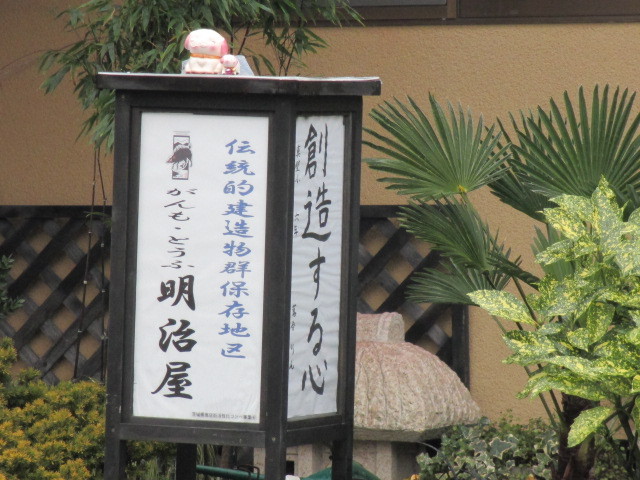 伝統的建造物群保存地区
がんも・とうふ
明治屋
創造する心